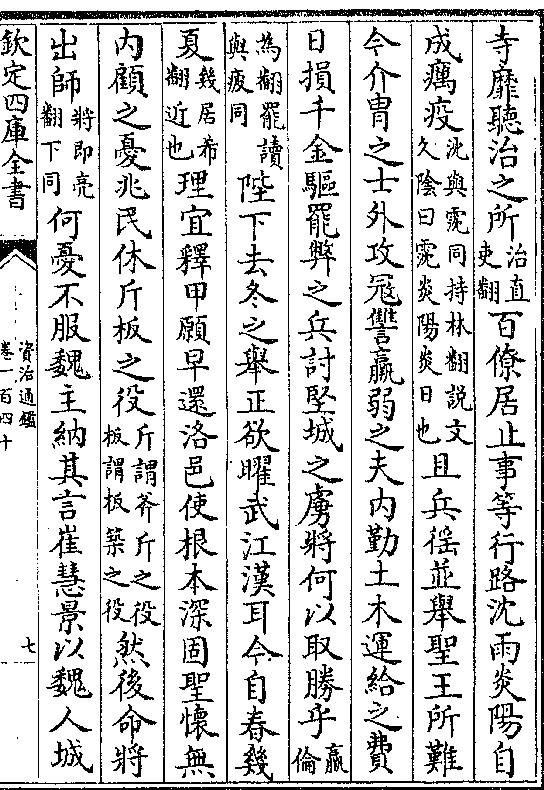 寺靡聽治之所治直吏翻百僚居止事等行路沈雨炎陽自
成癘疫沈與霃同持林翻說文久陰曰霃炎陽炎日也且兵徭並舉聖王所難
今介胄之士外攻寇讐羸弱之夫内勤土木運給之費
日損千金驅罷弊之兵討堅城之虜將何以取勝乎羸倫
為翻罷讀與疲同陛下去冬之舉正欲曜武江漢耳今自春幾
夏幾居希翻近也理宜釋甲願早還洛邑使根本深固聖懷無
内顧之憂兆民休斤板之役斤謂斧斤之役板謂板築之役然後命將
出師將即亮翻下同何憂不服魏主納其言崔慧景以魏人城
欽定四庫全書
資治通鑑
卷一百四十
七